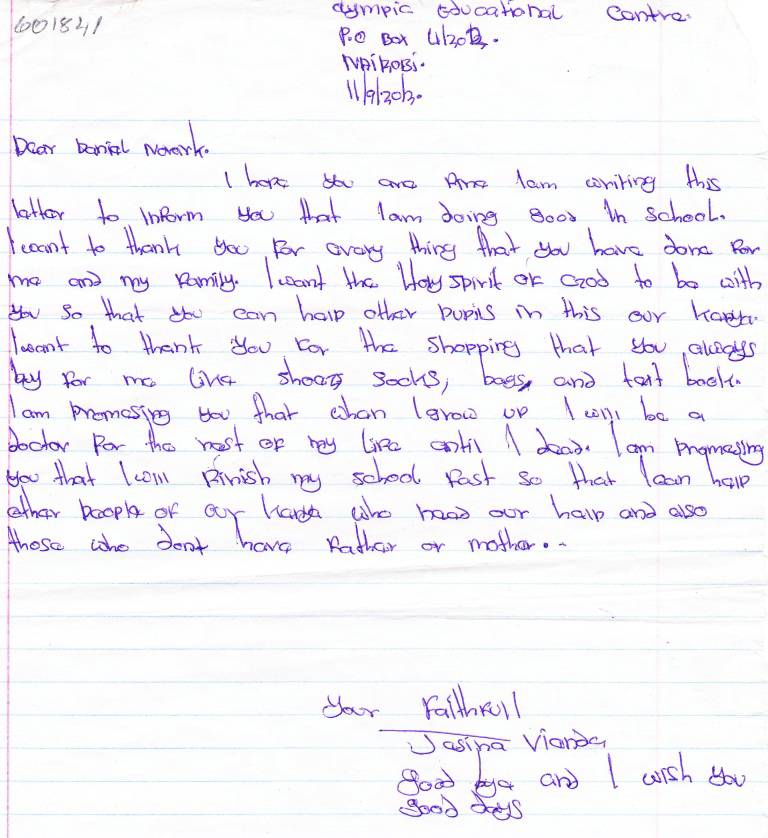 601841
Olympic Educational Centre.
P.O Box 41202.
NAIROBI.
11/9/2012.
Dear Danial Novark.
I hope you are fine Iam writing this
latter to inform you that Iam doing good in school.
I want to thank you for avary thing that you have done for
me and my family. I want the Holy spirit of God to be with
you so that you can halp other pupils in this our Kanya.
I want to thank you for the shopping that you always
buy for me like shoes socks, bags, and taxt book.
Iam promasing you that whan I grow up I will be a
doctor for the rest of my life until I dead. Iam promassing
you that I will finish my school fast so that I can halp
other people of our Kanya who need our halp and also
those who dont have father or mother..
Your Faithfull
Jasina Vianda
good bye and I wish you
good days